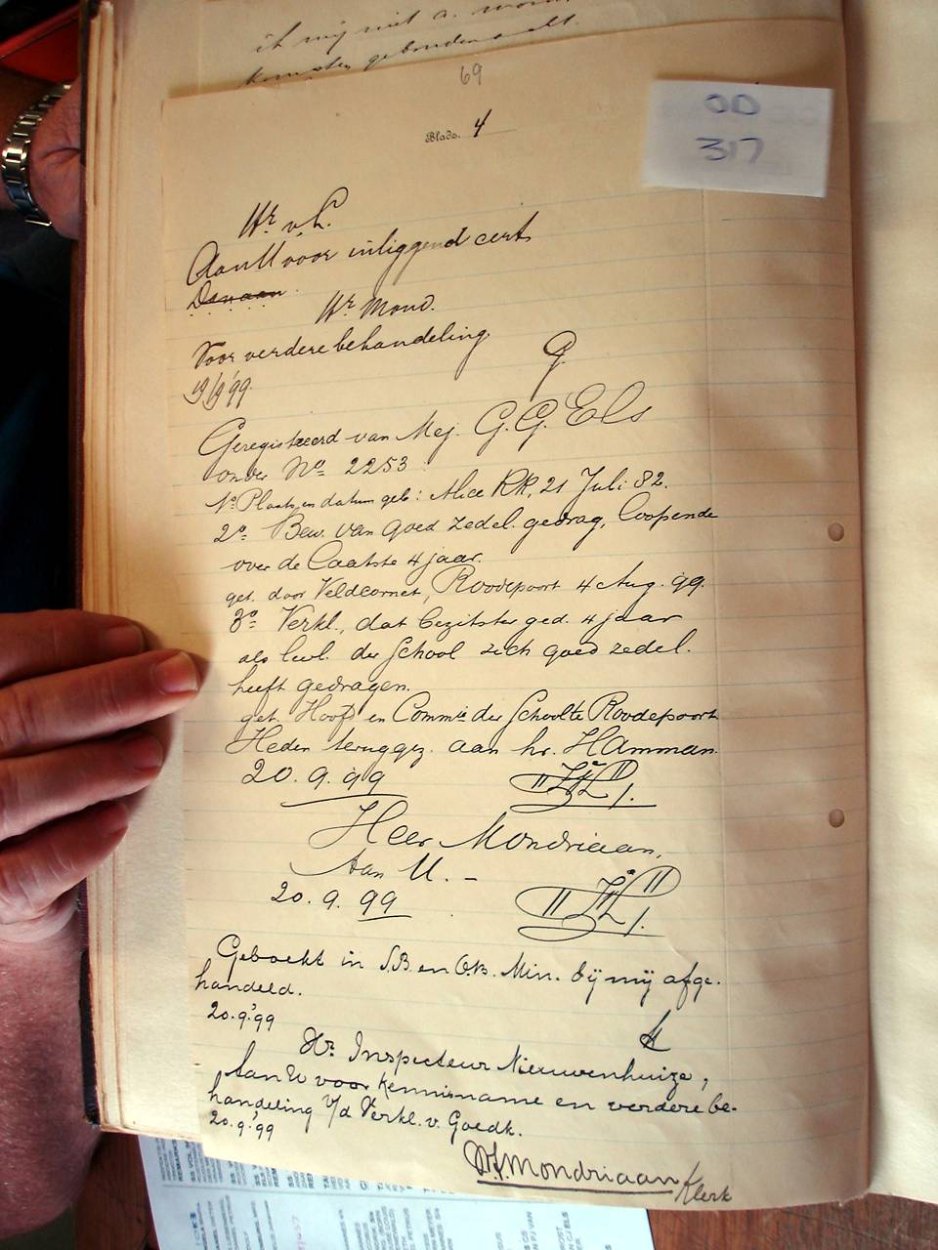 ik mij niet a.
gebonden
69
OD
317
Blads. 4
Hr. v. L.
Aan U voor inliggend cert.
Hr. Mond.
Voor verdere behandeling
G.
19/9/'99.
Geregistreerd van Mej. G. G. Els
onder No. 2253:
1o. Plaats en datum geb: Alice RR, 21 Juli 82.
2o. Bew. van goed zedel. gedrag, loopende
over de laatste 4 jaar.
get. door Veldcornet, Roodepoort 4 Aug. 99.
3o. Verkl., dat bezitster ged. 4 jaar
als leerl. der School zich goed zedel.
heeft gedragen.
get. Hoofd en Commie der School te Roodepoort
Heden teruggez. aan hr. Hamman.
20. 9. 99
Heer Mondriaan,
Aan U. -
20. 9. 99
Geboekt in S.B. en O.B. Min. bij mij afge-
handeld.
20.9.'99
Hr. Inspecteur Nieuwenhuize,
Aan U voor kennisname en verdere be-
handeling v/d Verkl. v. Goedk.
20.9.'99
Mondriaan
Klerk